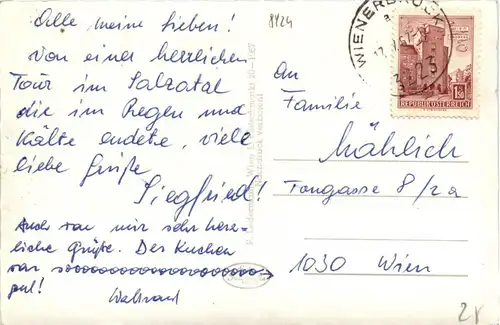 Alle meine Lieben!
Von einer herrlichen
Tour im Salzatal
die im Regen und
Kälte endete, viele
liebe Grüße
Siegfried!
Auch von mir sehr herz-
liche Grüße. Der Kuchen
war sooooooooooooooooo
gut! Waltraud
8424
WIENERBRUCK
REPUBLIK ÖSTERREICH
1.50
An
Familie
Mählich
Tongasse 8/2a
1030 Wien